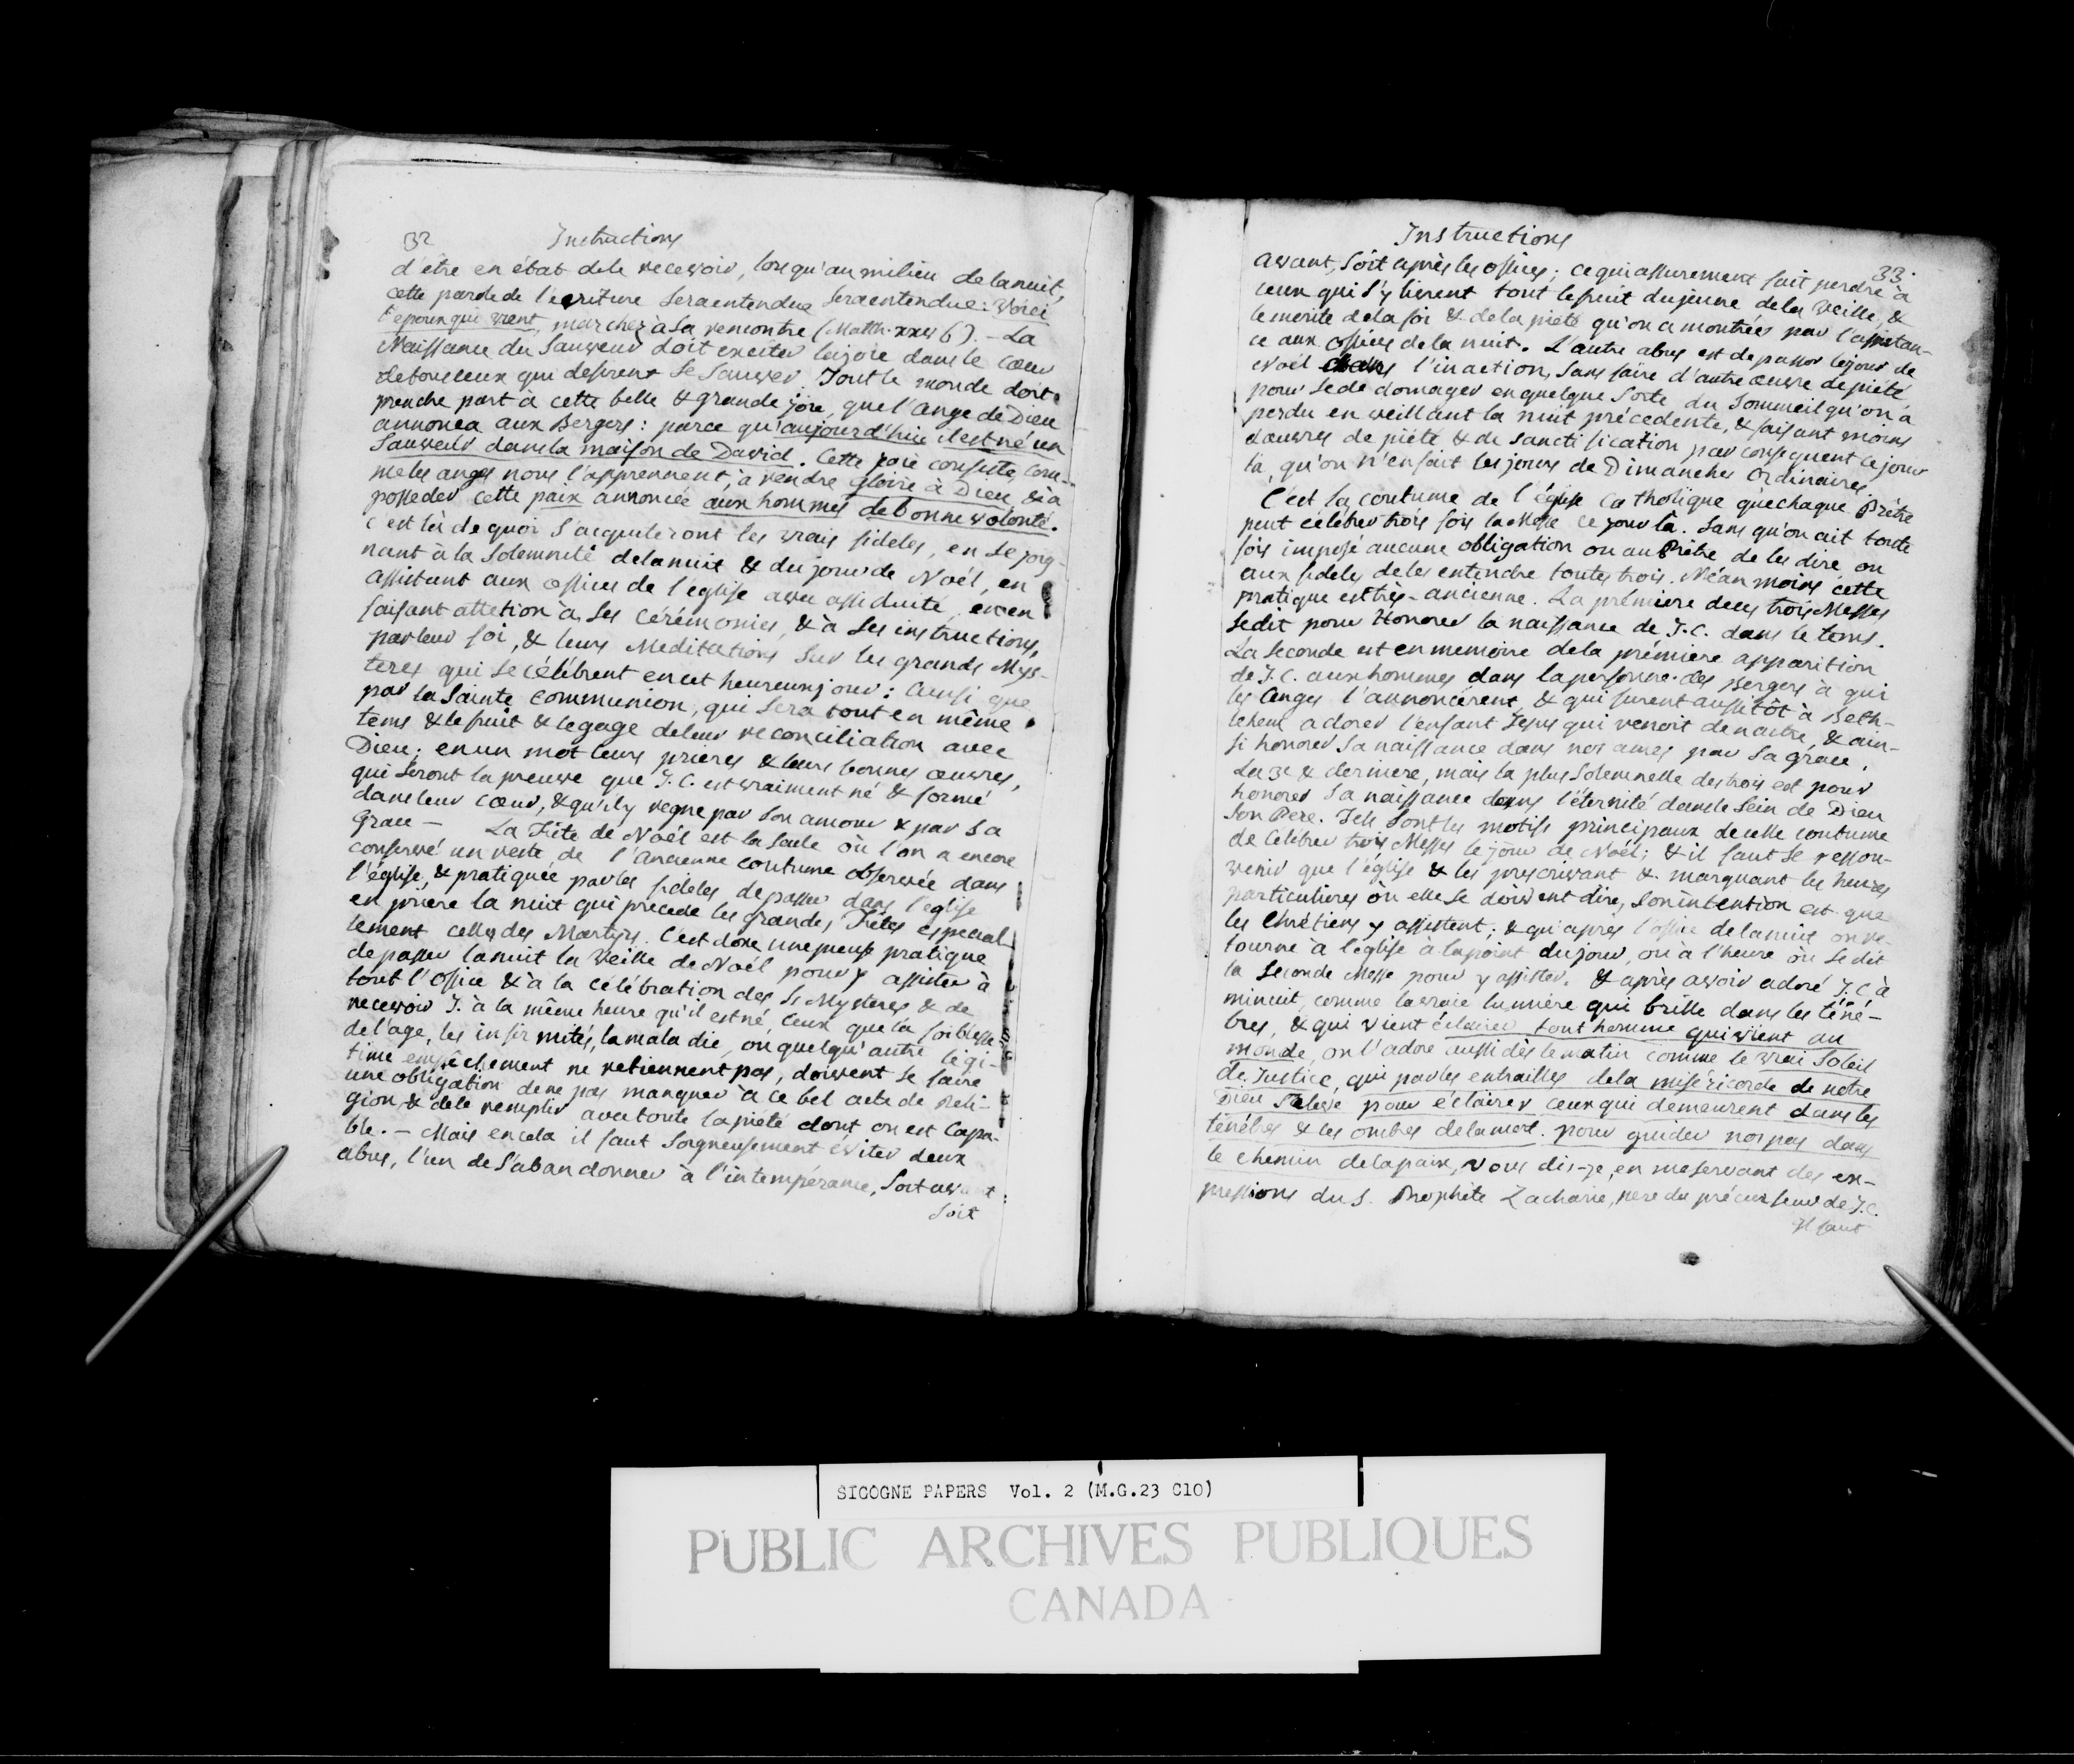 32 Instructions
d'être en état de le recevoir, lorsqu'au milieu de la nuit,
cette parole de l'ecriture sera entendue sera entendue: Voici
l'epoux qui vient, marchez à sa rencontre (Matth. xxv 6). - La
Naissance du Sauveur doit exciter la joie dans le cœur
de tous ceux qui desirent se sauver. Tout le monde doit
prendre part à cette belle & grande joie, que l'ange de Dieu
annonca aux Bergers: parce qu'aujourd'hui il est né un
Sauveur dans la maison de David. Cette joie consiste, com-
me les anges nous l'apprennent, à rendre gloire à Dieu, & à
posseder cette paix annoncée aux hommes de bonne volonté.
c'est là de quoi s'acquiteront les vrais fideles, en se joig-
nant à la solemnité de la nuit & du jour de Noël, en
assistant aux offices de l'église avec assiduité, & en
faisant attetion à ses cérémonies, & à ses instructions,
par leur foi, & leurs Meditations sur les grands Mys-
teres qui se célébrent en cet heureux jour: ainsi que
par la Sainte communion, qui sera tout en même
tems & le fruit & le gage de leur reconciliation avec
Dieu; en un mot leurs prieres & leurs bonnes œuvres,
qui seront la preuve que J.C. est vraiment né & formé
dans leur cœur, & qu'il y regne par son amour & par sa
Grace - La Fête de Noël est la seule où l'on a encore
conservé un reste de l'ancienne coutume observée dans
l'église, & pratiquée par les fideles de passer dans l'eglise
en priere la nuit qui précede les grandes Fêtes especial-
lement celles des Martyrs. C'est donc une pieuse pratique
de passer la nuit la Veille de Noël pour y assister à
tout l'Office & à la célébration des Sts Mysteres & de
recevoir J. à la même heure qu'il est né, Ceux que la foiblesse
de l'age, les infirmités, la maladie, ou quelqu'autre legi-
time empêchement ne retiennent pas, doivent se faire
une obligation de ne pas manquer à ce bel acte de Reli-
gion & de le remplir avec toute la piété dont on est Capa-
ble. - Mais en cela il faut soigneusement éviter deux
abus, l'un de s'abandonner à l'intempérance, soit avant
soit
Instructions
33.
avant, soit après les offices; ce qui assurement fait perdre à
ceux qui s'y livrent tout le fruit du jeune de la veille, &
le merite de la foi & de la piété qu'on a montrées par l'assistan-
ce aux offices de la nuit. L'autre abus est de passer le jour de
Noël dans l'inaction, sans faire d'autre œuvre de piété
pour se dédomager en quelque sorte du sommeil qu'on a
perdu en veillant la nuit précedente, & faisant moins
d'œuvres de piété & de sanctification par consequent ce jour
là, qu'on n'en fait les jours de Dimanches Ordinaires.
C'est la coutume de l'église Catholique que chaque Prêtre
peut célébrer trois fois la Messe ce jour là. sans qu'on ait toute
fois imposé aucune obligation ou au Prêtre de les dire ou
aux fideles de les entendre toutes trois. Néanmoins cette
pratique est très-ancienne. La prémiere de ces trois Messes
se dit pour Honorer la naissance de J.C. dans le tems.
La seconde est en memoire de la prémiere apparition
de J.C. aux hommes dans la personne des Bergers à qui
les Anges l'annoncérent, & qui furent aussitôt à Beth-
lehem adorer l'enfant Jesus qui venoit de naitre, & ain-
si honorer sa naissance dans nos ames par sa grace.
La 3e & derniere, mais la plus solemnelle des trois est pour
honorer sa naissance dans l'éternité dans le sein de Dieu
son Pere. Tels sont les motifs principaux de cette coutume
de Celebrer trois Messes le jour de Noël; & il faut se ressou-
venir que l'église & les prescrivant & marquant les heures
particulieres où elles se doivent dire, son intention est que
les Chrétiens y assistent; & qu'après l'office de la nuit on re-
tourne à l'église à la point du jour, où à l'heure où se dit
la seconde Messe pour y assister. & après avoir adoré J.C à
minuit, comme la vraie lumière qui brille dans les téné-
bres, & qui vient éclairer tout homme qui vient au
monde, on l'adore aussi dès le matin comme le vrai Soleil
de Justice, qui par les entrailles de la miséricorde de notre
Dieu s'éleve pour éclairer ceux qui demeurent dans les
ténébres & les ombres de la mort. pour guider nos pas dans
le chemin de la paix, vous dis-je, en me servant des ex-
pressions du S. Prophête Zacharie, pere du précurseur de J.C.
Il faut
SICOGNE PAPERS Vol. 2 (M.G.23 C10)
PUBLIC ARCHIVES PUBLIQUES
CANADA